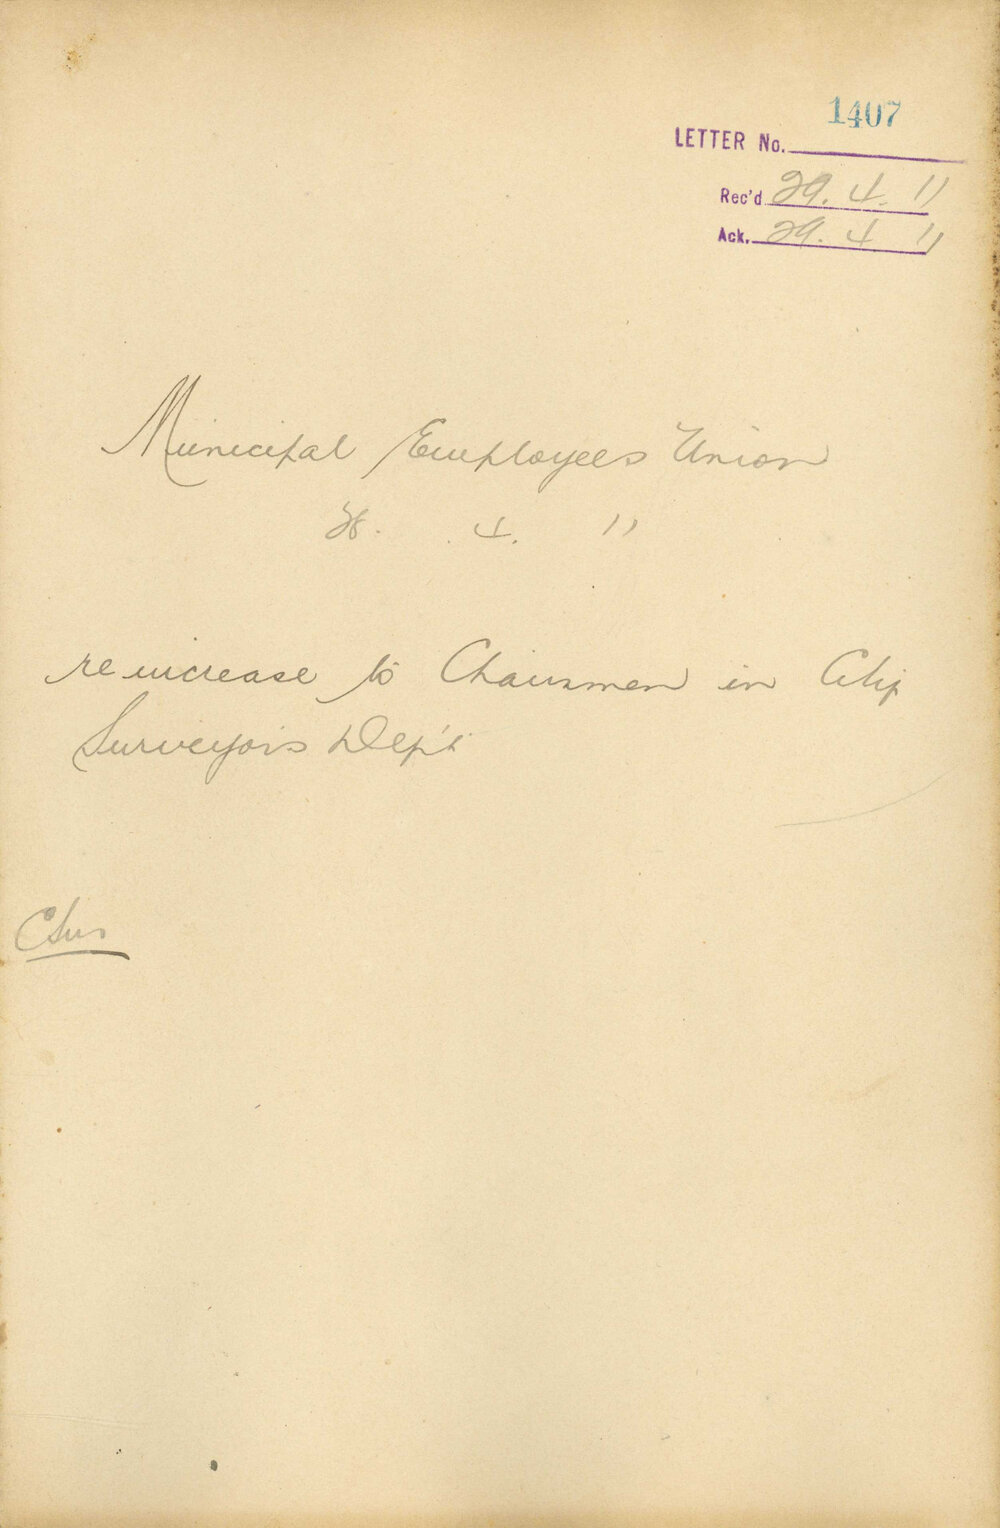 1407
LETTER No.
Rec'd 29. 4. 11
Ack. 29. 4 11
Municipal Employees Union
28. 4. 11
re increase to Chainmen in City
Surveyors Dep't
CSur